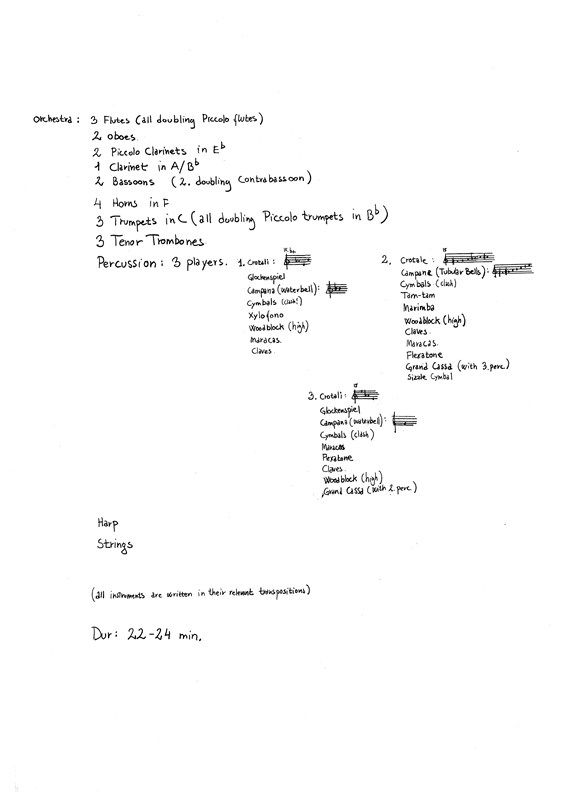 Orchestra: 3 Flutes (all doubling Piccolo flutes)
2 oboes.
2 Piccolo Clarinets in Eb
1 Clarinet in A/Bb
2 Bassoons (2. doubling Contrabassoon)
4 Horns in F
3 Trumpets in C (all doubling Piccolo trumpets in Bb)
3 Tenor Trombones.
Percussion: 3 players.
1. Crotali:
Glockenspiel
Campana (waterbell):
Cymbals (clash)
Xylofono
Woodblock (high)
Maracas.
Claves.
2. Crotale:
Campane (Tubular Bells):
Cymbals (clash)
Tam-tam
Marimba
Woodblock (high)
Claves.
Maracas.
Flexatone
Grand Cassa (with 3. perc.)
Sizzle Cymbal
3. Crotali:
Glockenspiel
Campana (waterbell):
Cymbals (clash)
Maracas
Flexatone
Claves.
Woodblock (high)
Grand Cassa (with 2. perc.)
Harp
Strings
(all instruments are written in their relevant transpositions)
Dur: 22-24 min.